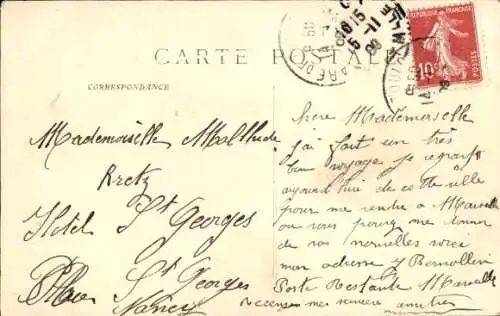 CARTE POSTALE
CORRESPONDANCE
Mademoiselle Mathilde
Kretz
Hotel St Georges
Place St Georges
Nancy
Chère Mademoiselle
j'ai fait un très
bon voyage je
aujourd'hui de cette ville
pour me rendre a Marseille
ou vous pouvez me donner
de vos nouvelles voici
mon adresse
Poste Restante Marseille
Recevez mes
REPUBLIQUE FRANÇAISE
10
POSTES
GARE DE
15
5-11
08